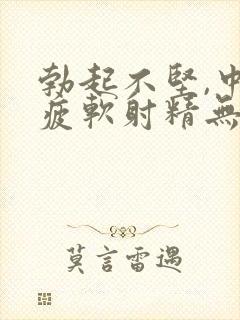 勃起不堅,中
疲軟射精無
莫言雷遇